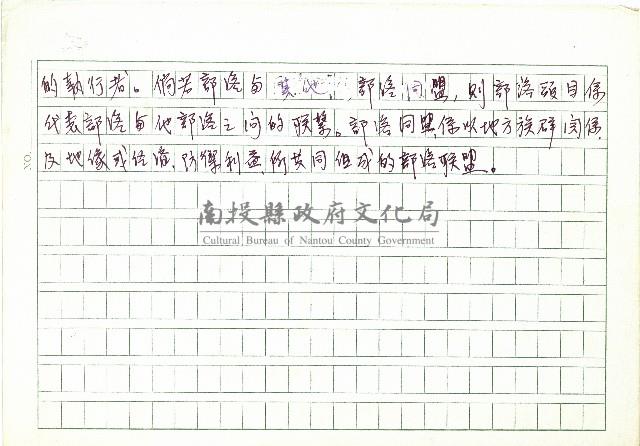 的執行者。倘若部落与其他部落同盟,则部落頭目係
代表部落与他部落之间的联繫。部落同盟係以地方族群関係,
及地缘或经濟、防禦利益,所共同组成的部落联盟。
NO.
南投縣政府文化局
Cultural Bureau of Nantou County Government